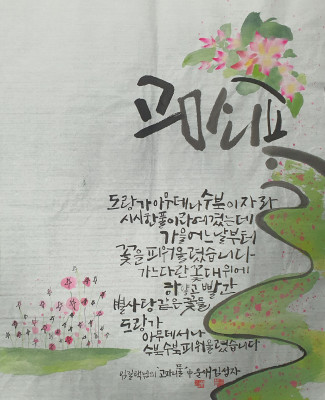 고마리
도랑가 아무데나 수북이 자라
시시한 풀이라 여겼는데
가을 어느 날부터
꽃을 피워 올렸습니다
가느다란 꽃대 위에
하얗고 빨간
별사탕 같은 꽃들
도랑가
아무데서나
수북수북 피워 올렸습니다